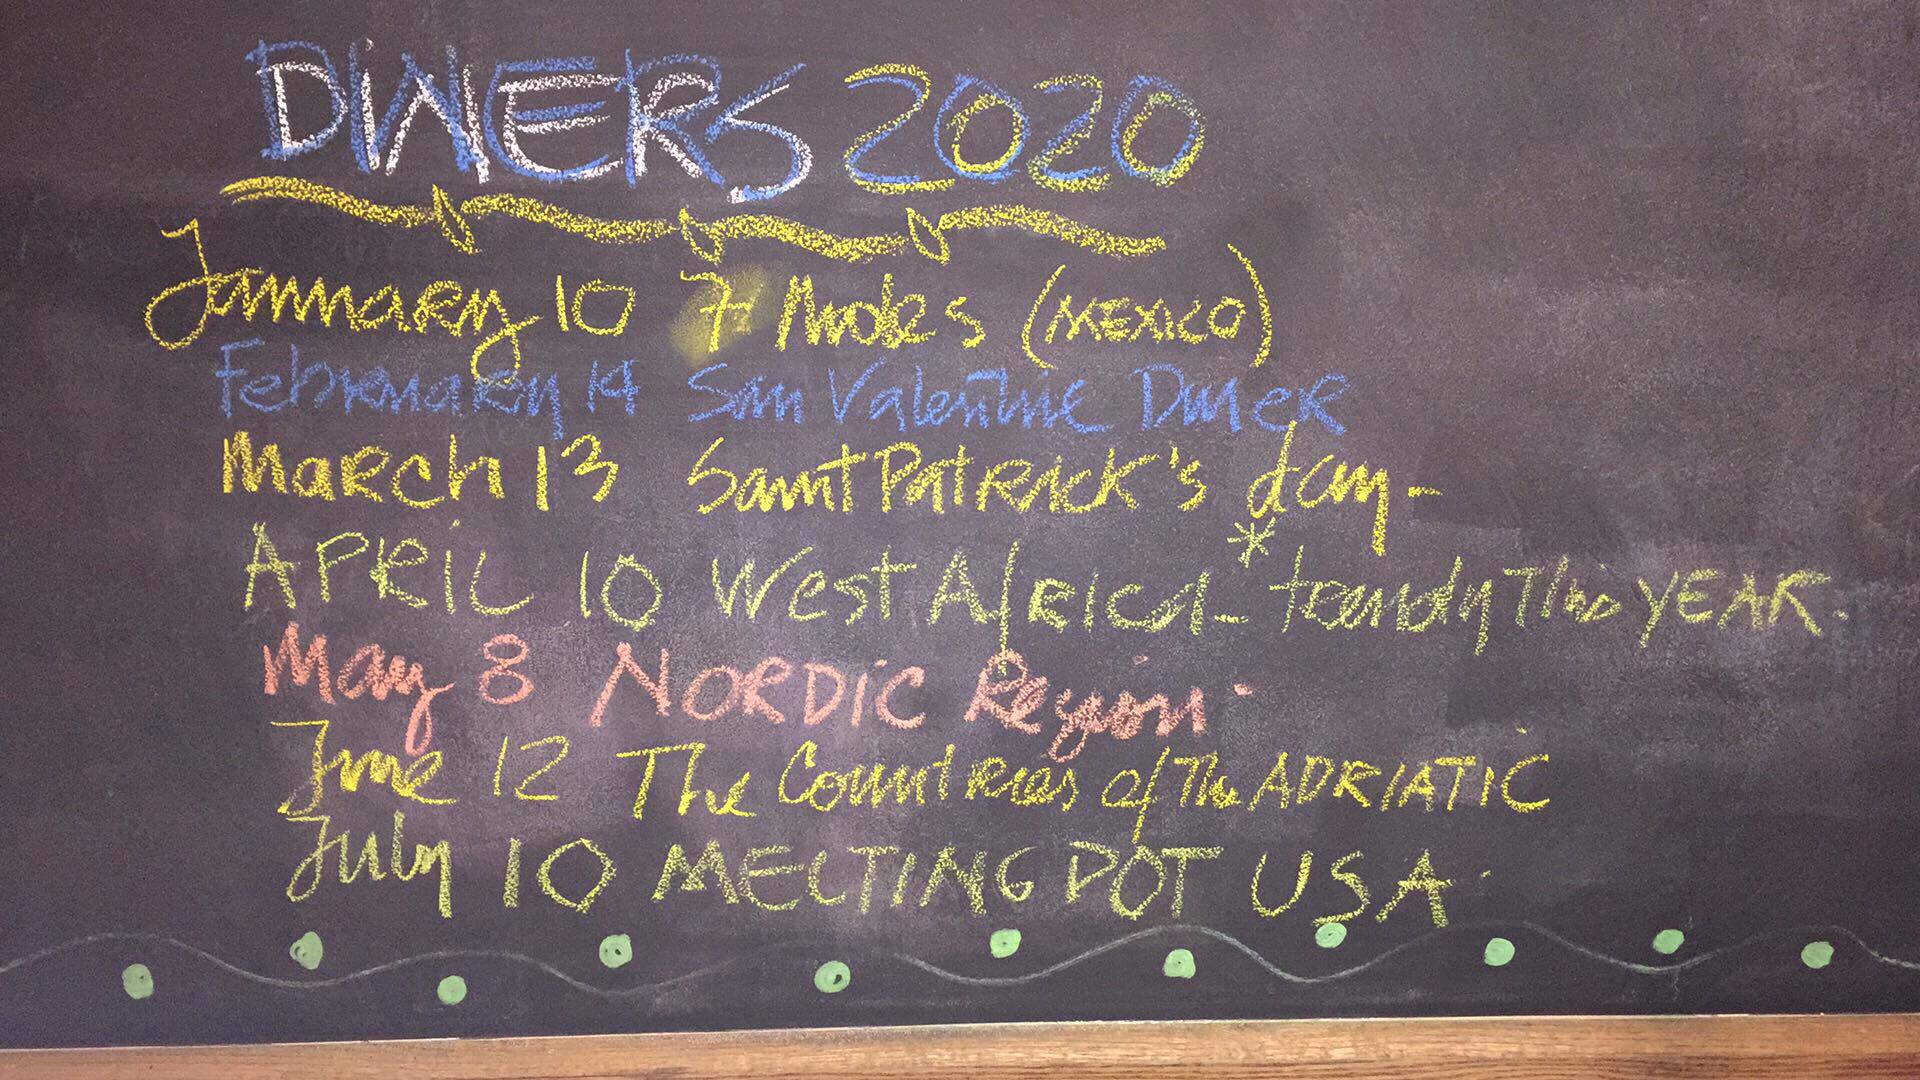 DINERS 2020
January 10 7 Moles (MEXICO)
February 14 San Valentine Diner
MARCH 13 Saint PATRICK's day-
APRIL 10 West AfRICA- *trendy This YEAR.
May 8 NORDIC Region.
June 12 The Countries of The ADRIATIC
July 10 MELTING POT USA.